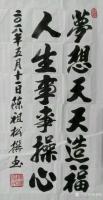 夢想天天造福
人生事事操心
二〇一八年五月十二日陈祖松撰书